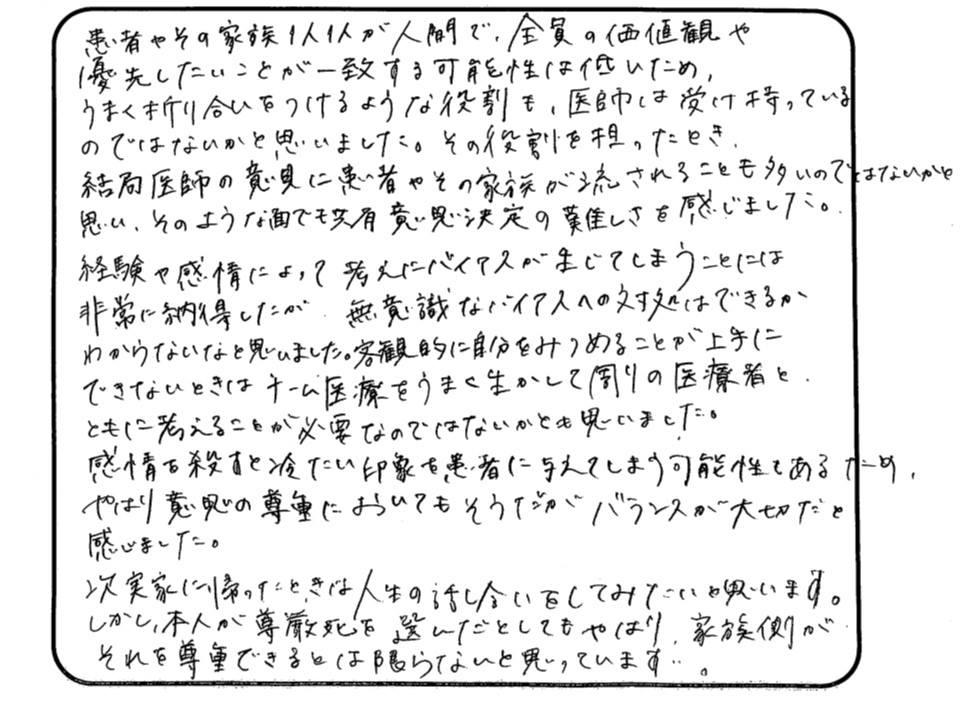 患者やその家族1人1人が人間で、全員の価値観や
優先したいことが一致する可能性は低いため、
うまく折り合いをつけるような役割も、医師は受け持っている
のではないかと思いました。その役割を担ったとき、
結局医師の意見に患者やその家族が流されることも多いのではないかと
思い、そのような面でも共有意思決定の難しさを感じました。
経験や感情によって考えにバイアスが生じてしまうことには
非常に納得したが、無意識なバイアスへの対処はできるか
わからないなと思いました。客観的に自分をみつめることが上手に
できないときはチーム医療をうまく生かして周りの医療者と、
ともに考えることが必要なのではないかとも思いました。
感情を殺すと冷たい印象を患者に与えてしまう可能性もあるため、
やはり意思の尊重においてもそうだがバランスが大切だと
感じました。
次実家に帰ったときは人生の話し合いをしてみたいと思います。
しかし、本人が尊厳死を選んだとしてもやはり、家族側が
それを尊重できるとは限らないと思っています…。